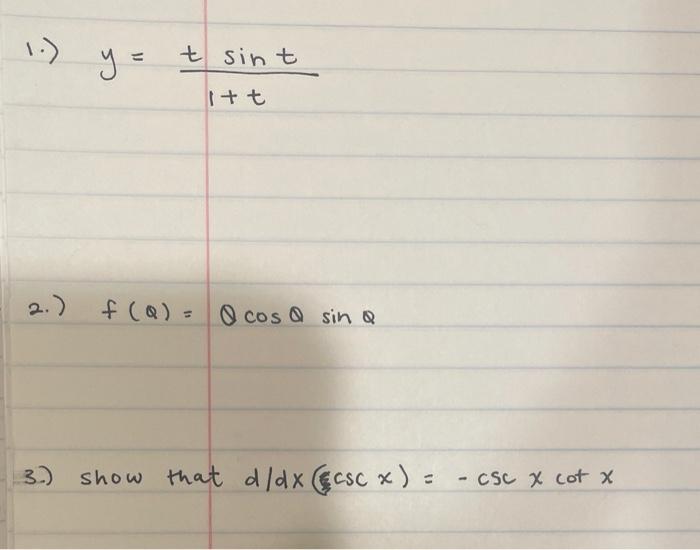 1.) y = t sin t
1 + t
2.) f(θ) = θ cos θ sin θ
3.) show that d/dx (csc x) = - csc x cot x